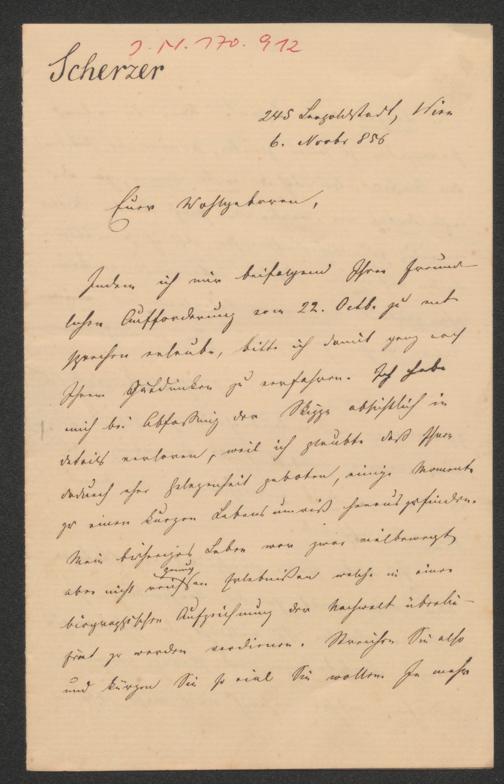 J. N. 170.912
Scherzer
245 Leopoldstadt, Wien
6. Novbr 856
Euer Wohlgeboren,
Indem ich mir beifolgend Ihrer freund-
lichen Aufforderung vom 22. Octbr zu ent-
sprechen erlaube, bitte ich damit ganz nach
Ihrem Gutdünken zu verfahren. Ich habe
mich bei Abfassung der Skizze absichtlich in
details verloren, weil ich glaubte daß Ihnen
dadurch eher Gelegenheit geboten, einige Momente
zu einem kurzen Lebensumriß herauszufinden.
Mein bisheriges Leben war zwar vielbewegt
genug
aber nicht reich an Erlebnißen welche in einer
biographischen Aufzeichnung der Nachwelt überlie-
fert zu werden verdienen. Streichen Sie also
und kürzen Sie so viel Sie wollen. Je mehr